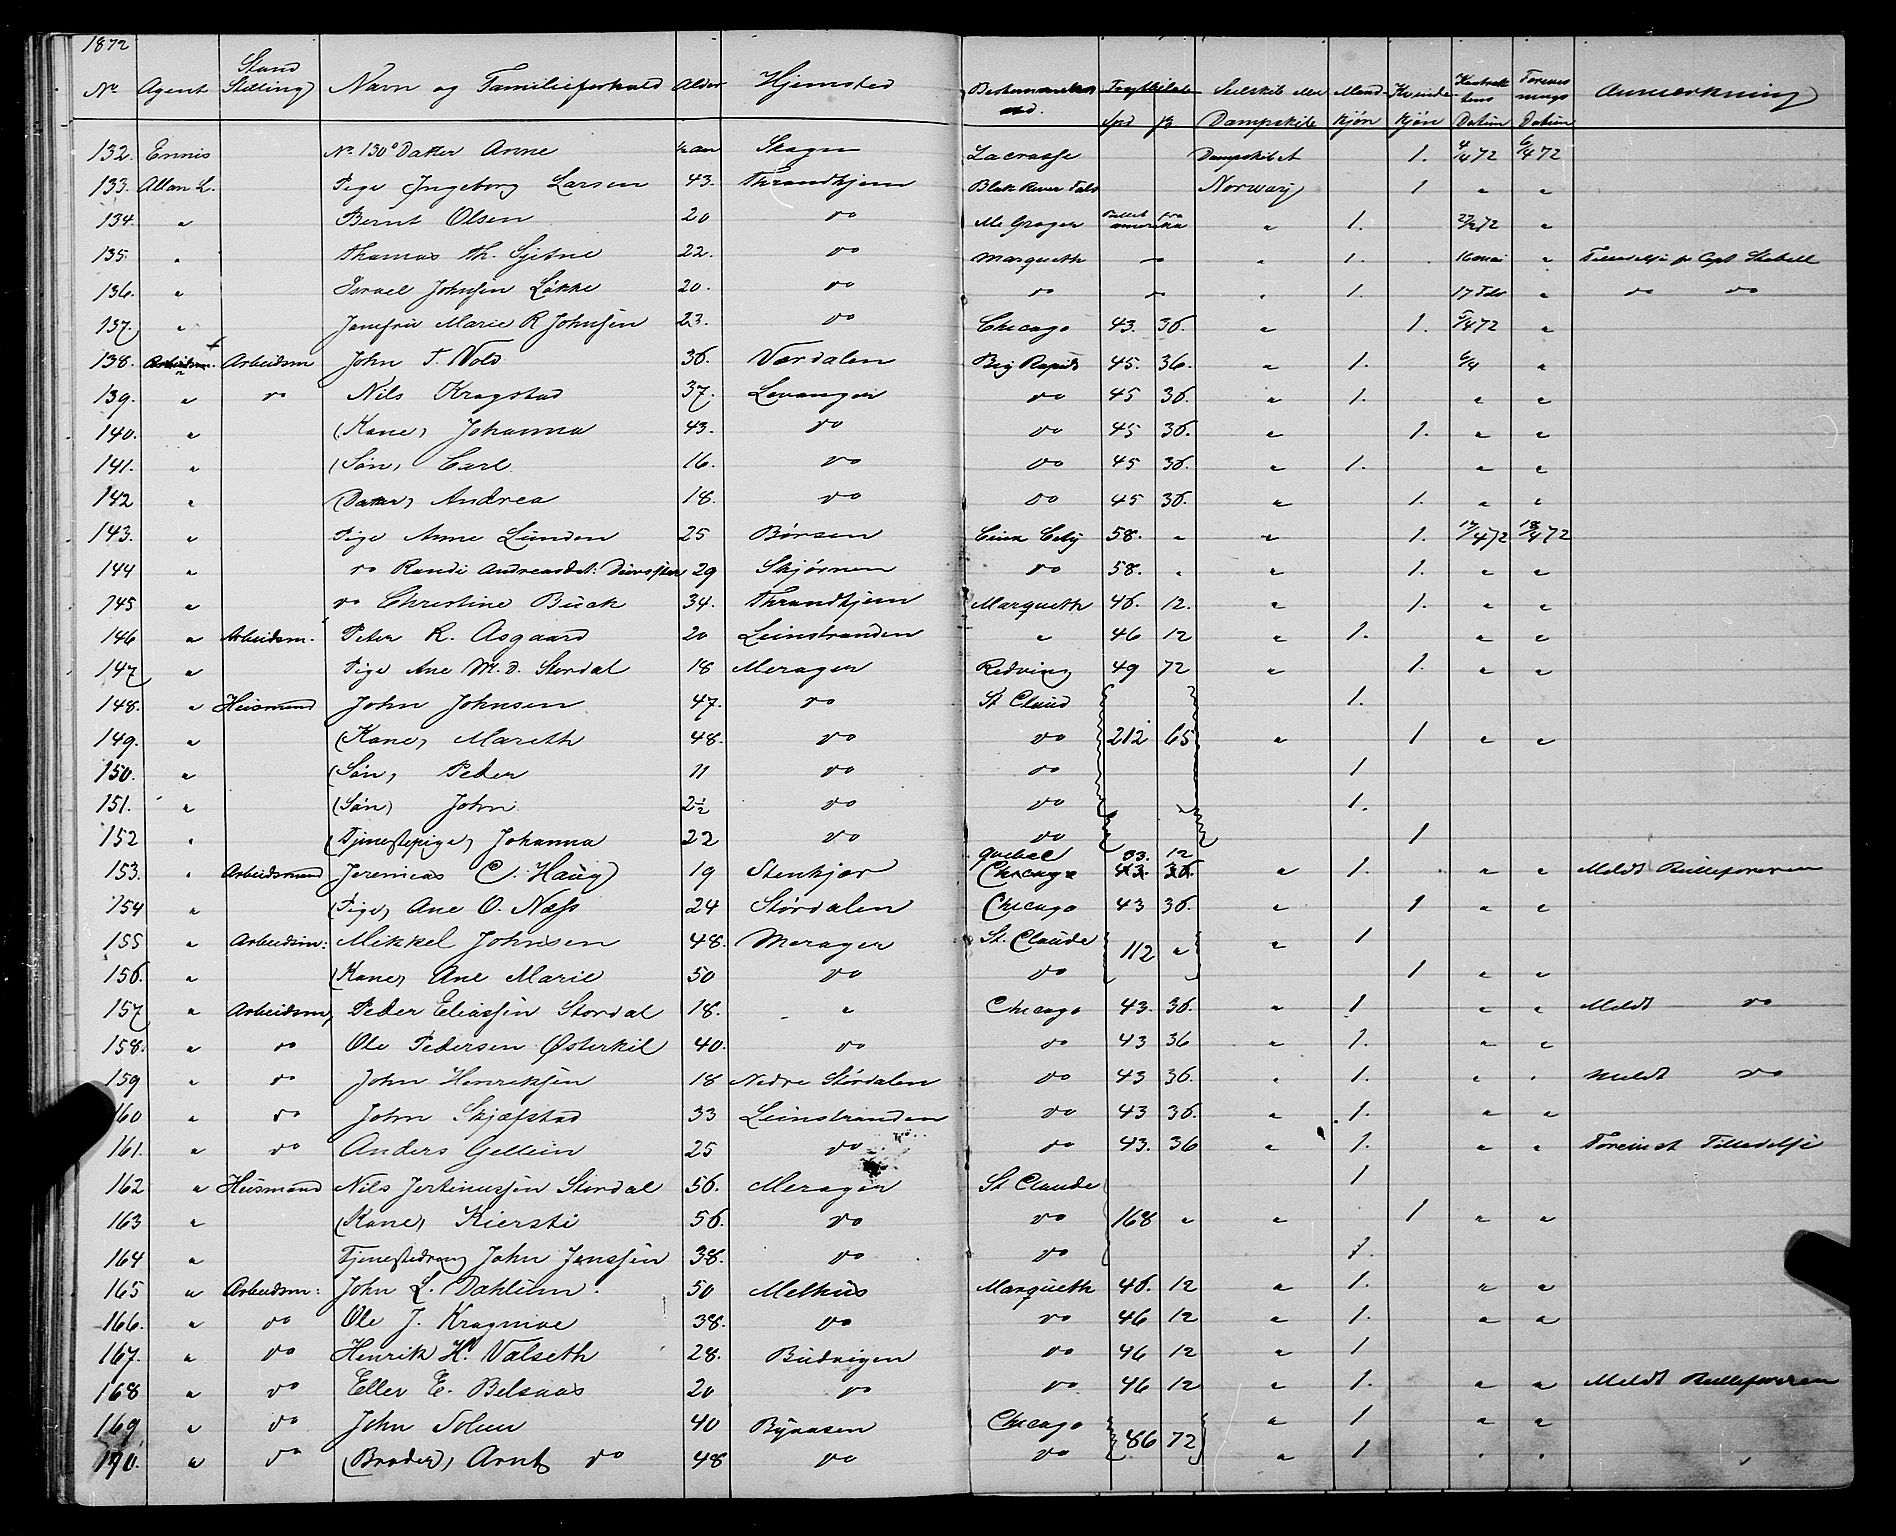 1872
No Agent Stand Stilling Navn og Familieforhold Alder Hjemsted Bestemmelses sted. Fragtbeløb Spd ß Seilskib eller Dampskib Mandkjøn Kvindekjøn Kontraktens Datum Forevisnings Datum Anmærkning
132. Ennis No 130 Datter Anne Skogn Lacrosse Dampskibet 1. 4/4 72 6/4 72
133. Allan L. Pige Ingeborg Larsen 43. Throndhjem Blak River Fals Norway 1 " "
134. " Bernt Olsen 20 do Mc Gregor Billet fra amerika " 1. 27/2 72 "
135. " Thomas Th. Gjetne 22. do Marqueth do " 1. 16 mai " Tilladelse fr Capt Stabell
136. " Israel Johnsen Løkke 20. do do do " 1. 17 Febr " do do
137. " Jomfru Marie R Johnsen 23. do Chicago 43. 36. " 1. 5/4 72 "
138. " Arbeidsm John T. Vold 36. Værdalen Big Rapids 45. 36. " 1. 6/4 "
139. " do Nils Kragstad 37. Levanger do 45 36. " 1. " "
140. " (Kone) Johanna 43. do do 45 36. " 1. " "
141. " (Søn) Carl 16. do do 45 36. " 1. " "
142 " (Datter) Andrea 18. do do 45 36. " 1. " "
143. " Pige Anne Lunden 25 Børsen 58. " " 1. 17/4 72 18/4 72
144 " do Randi Andreasdat: 29 Skjørnen do 58. " " 1. " "
145 " do Christine Buck 34. Throndhjem Marqueth 46. 12. " 1. " "
146 " Arbeidsm. Peter R. Asgaard 20 Leinstranden " 46 12 " 1. " "
147 " Pige Ane M. D. Stordal 18 Merager Redving 49 72 " 1. " "
148. " Husmand John Johnsen 47. do St Cloud 1.
149. " (Kone) Mareth 48. do do 212 65 " 1 " "
150. " (Søn) Peder 11 do do 1
151. " (Søn) John 2½ do do 1.
152 " (Tjenestepige) Johanna 22 do do 1
153. " Arbeidsmand Jeremias C. Haug 19 Stenkjær Quebec Chicago 33. 12 43. 36. " 1. " " Meldt Rulleføreren
154 " (Pige) Ane O. Næss 24 Størdalen Chicago 43 36. " 1 " "
155 " Arbeidsm: Mikkel Johnsen 48. Merager St. Claude 112 " " 1
156. " (Kone) Ane Marie 50 do do 1 " "
157 " Arbeidsm, Peder Eliassen Stordal 18. " Chicago 43. 36. " 1 " " Meldt do
158. " do Ole Pedersen Østerkil 40. do do 43 36 " 1. " "
159 " do John Henriksen 18 Nedre Størdalen do 43 36. " 1. " " Meldt do
160 " do John Skjefstad 33 Leinstranden do 43 36. " 1. " "
161. " do Anders Gellein 25 do do 43. 36 " 1. " " Forevist Tilladelse
162 " Husmand Nils Jertinussen Stordal 56. Merager St Claude 1
163 " (Kone) Kiersti 56. do do 168 " " 1 " "
164 " Tjenestedreng John Jonssen 38. do do 1.
165 " Arbeidsm: John L. Dahlum. 50 Melhus Marqueth 46. 12 " 1. " "
166. " do Ole J. Kragmoe 38. do do 46 12 " 1. " "
167. " do Henrik H. Valseth 28. Budvigen do 46 12 " 1
168 " do Eller E. Belsaas 20 do do 46 12 " 1. " " Meldt Rulleføreren
169. " do John Solem 40 Bynæsen Chicago 86 72 " 1 " "
170. " do (Broder) Arnt do 48 do do " 1 " "